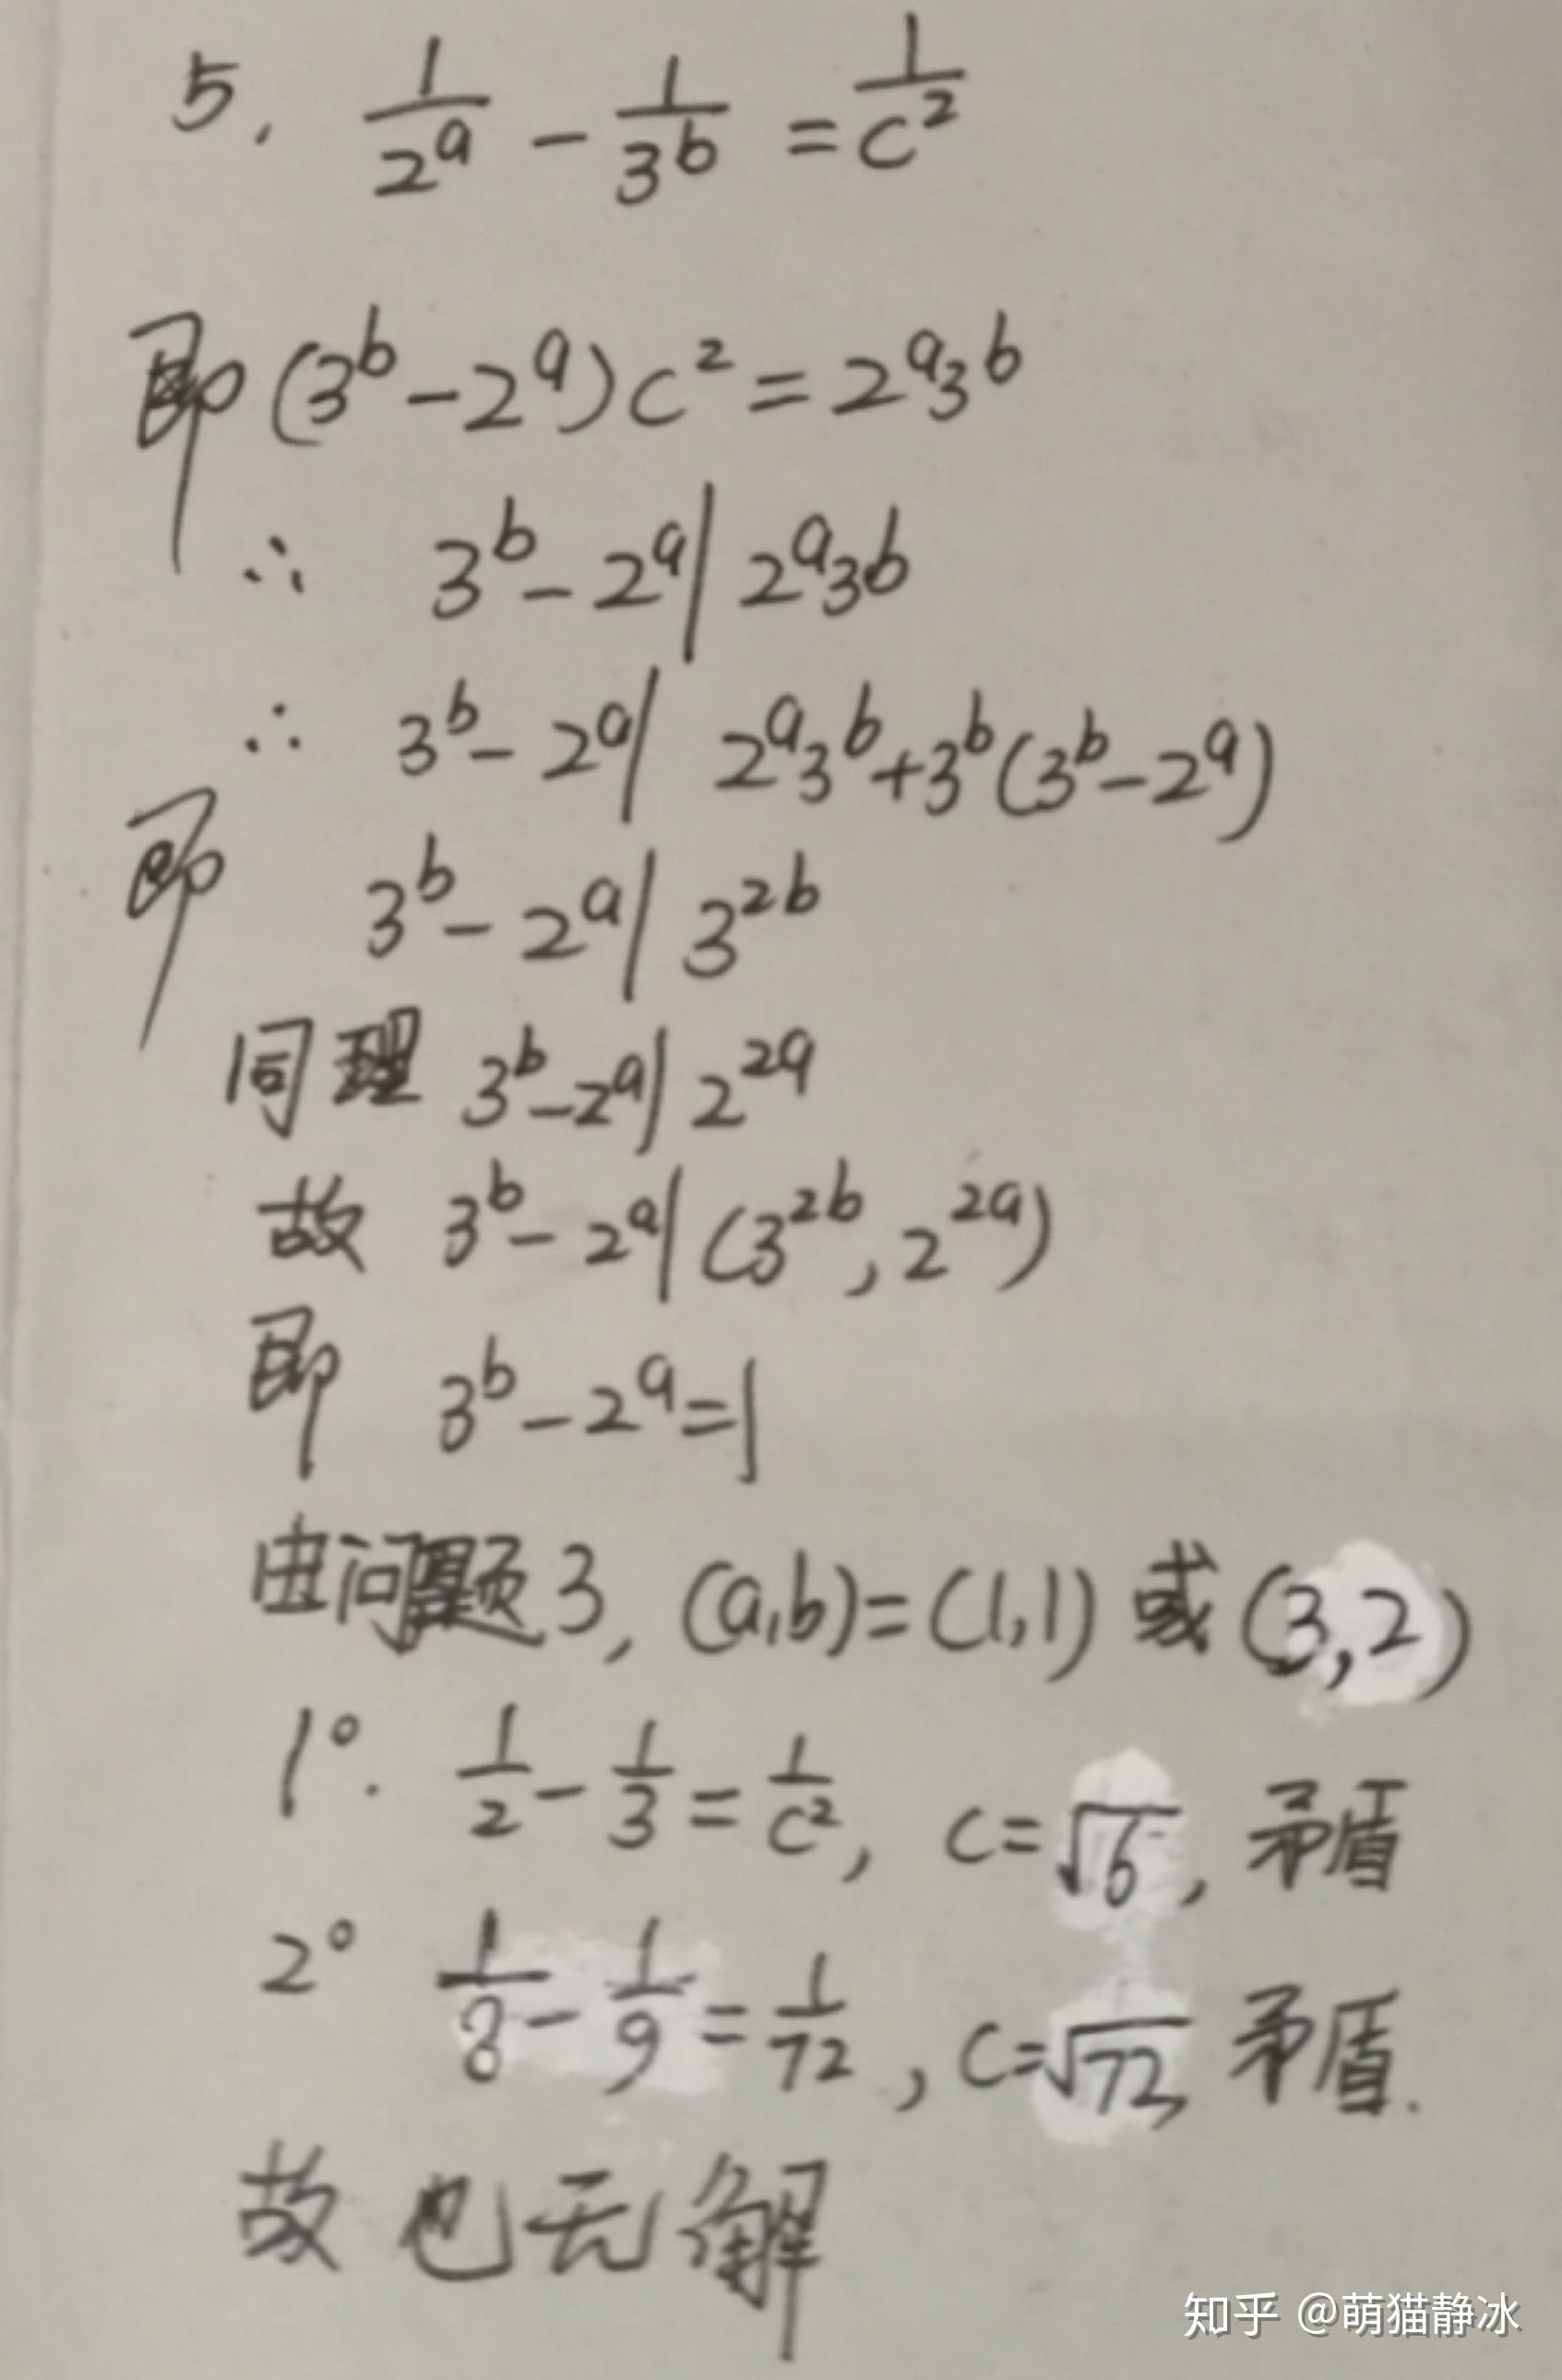 5. 1/2^a - 1/3^b = 1/c^2
即 (3^b - 2^a)c^2 = 2^a3^b
∴ 3^b - 2^a | 2^a3^b
∴ 3^b - 2^a | 2^a3^b + 3^b(3^b - 2^a)
即 3^b - 2^a | 3^{2b}
同理 3^b - 2^a | 2^{2a}
故 3^b - 2^a | (3^{2b}, 2^{2a})
即 3^b - 2^a = 1
由问题3, (a,b) = (1,1) 或 (3,2)
1°. 1/2 - 1/3 = 1/c^2, c = √6, 矛盾
2° 1/8 - 1/9 = 1/72, c = √72 矛盾.
故也无解
知乎 @萌猫静冰